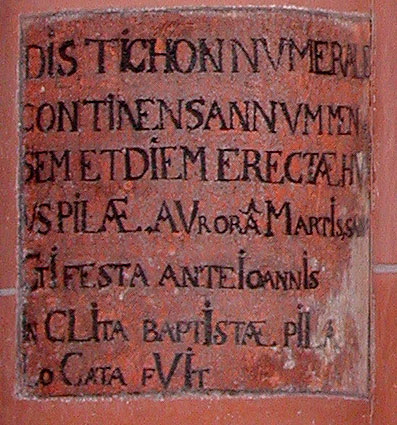 DISTICHON NVMERALE
CONTINENS ANNVM MEN
SEM ET DIEM ERECTÆ HV
IVS PILÆ. AVrorâ MartIs,
festa ante Ioannis
InCLIta baptIstæ pILa
LoCata fVIt